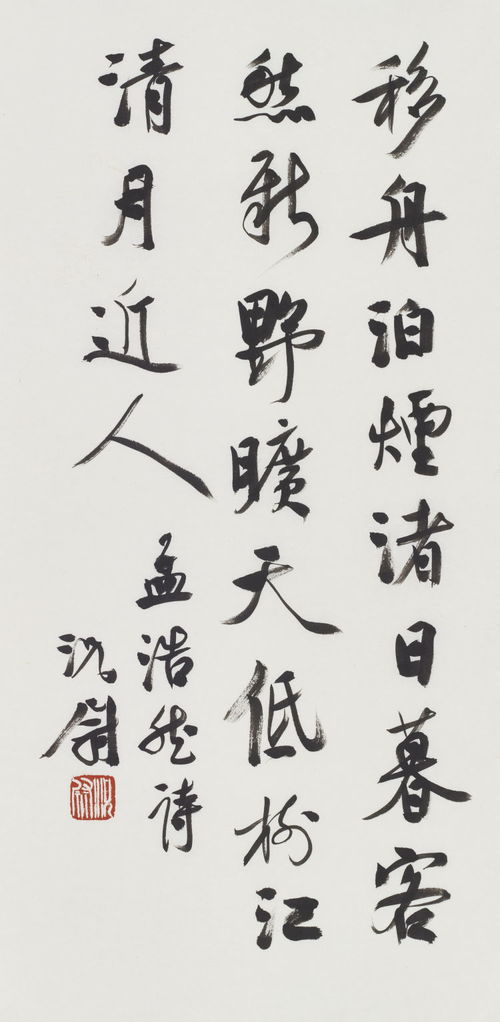 移舟泊煙渚日暮客
愁新野曠天低樹江
清月近人
孟浩然詩
沈